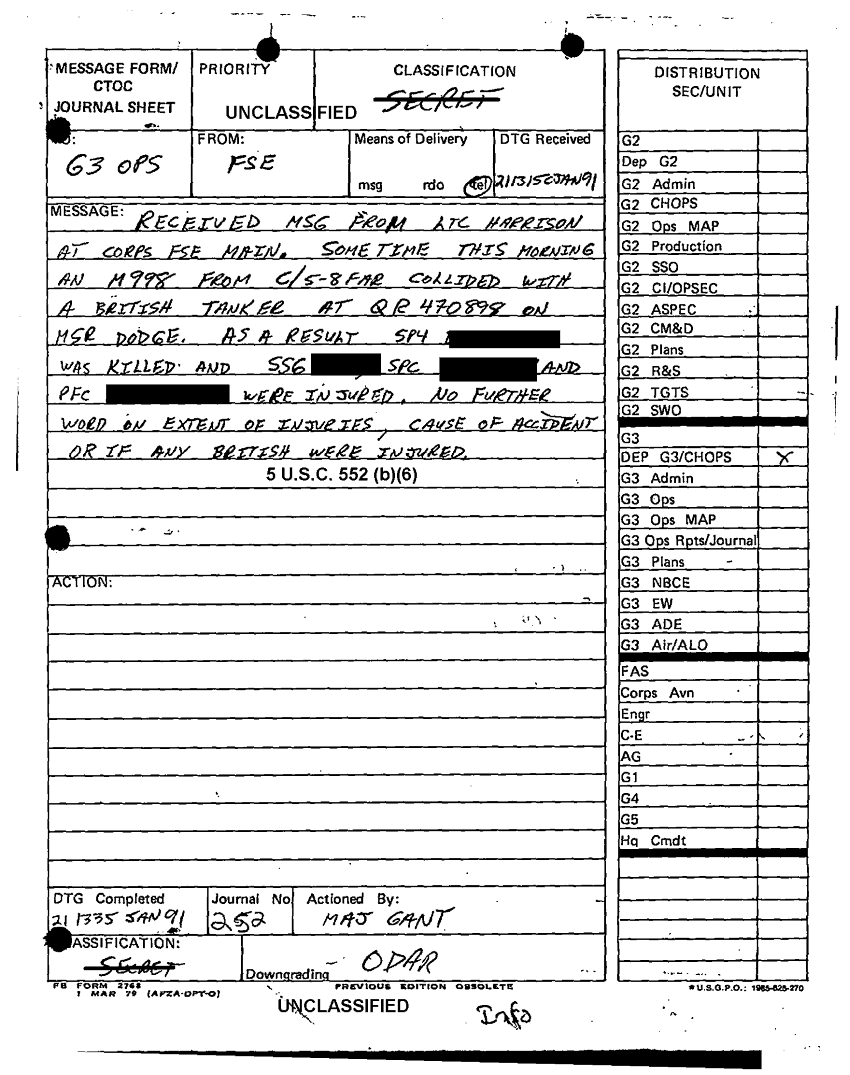 MESSAGE FORM/
CTOC
JOURNAL SHEET
PRIORITY
CLASSIFICATION
SECRET
UNCLASSIFIED
FROM:
Means of Delivery
DTG Received
G3 OPS
FSE
msg rdo tel
211315CJAN91
MESSAGE: RECEIVED MSG FROM LTC HARRISON
AT CORPS FSE MAIN. SOMETIME THIS MORNING
AN M998 FROM C/5-8 FAR COLLIDED WITH
A BRITISH TANKER AT QR 470898 ON
MSR DODGE. AS A RESULT SP4
WAS KILLED AND SSG SPC AND
PFC WERE INJURED. NO FURTHER
WORD ON EXTENT OF INJURIES, CAUSE OF ACCIDENT
OR IF ANY BRITISH WERE INJURED.
5 U.S.C. 552 (b)(6)
ACTION:
DTG Completed
21 1335 JAN 91
Journal No
252
Actioned By:
MAJ GANT
ASSIFICATION:
SECRET
Downgrading
ODAR
FB FORM 2768
1 MAR 79 (AFZA-DPT-O)
PREVIOUS EDITION OBSOLETE
UNCLASSIFIED
Info
DISTRIBUTION
SEC/UNIT
G2
Dep G2
G2 Admin
G2 CHOPS
G2 Ops MAP
G2 Production
G2 SSO
G2 CI/OPSEC
G2 ASPEC
G2 CM&D
G2 Plans
G2 R&S
G2 TGTS
G2 SWO
G3
DEP G3/CHOPS X
G3 Admin
G3 Ops
G3 Ops MAP
G3 Ops Rpts/Journal
G3 Plans
G3 NBCE
G3 EW
G3 ADE
G3 Air/ALO
FAS
Corps Avn
Engr
C-E
AG
G1
G4
G5
Hq Cmdt
*U.S.G.P.O.: 1985-625-270